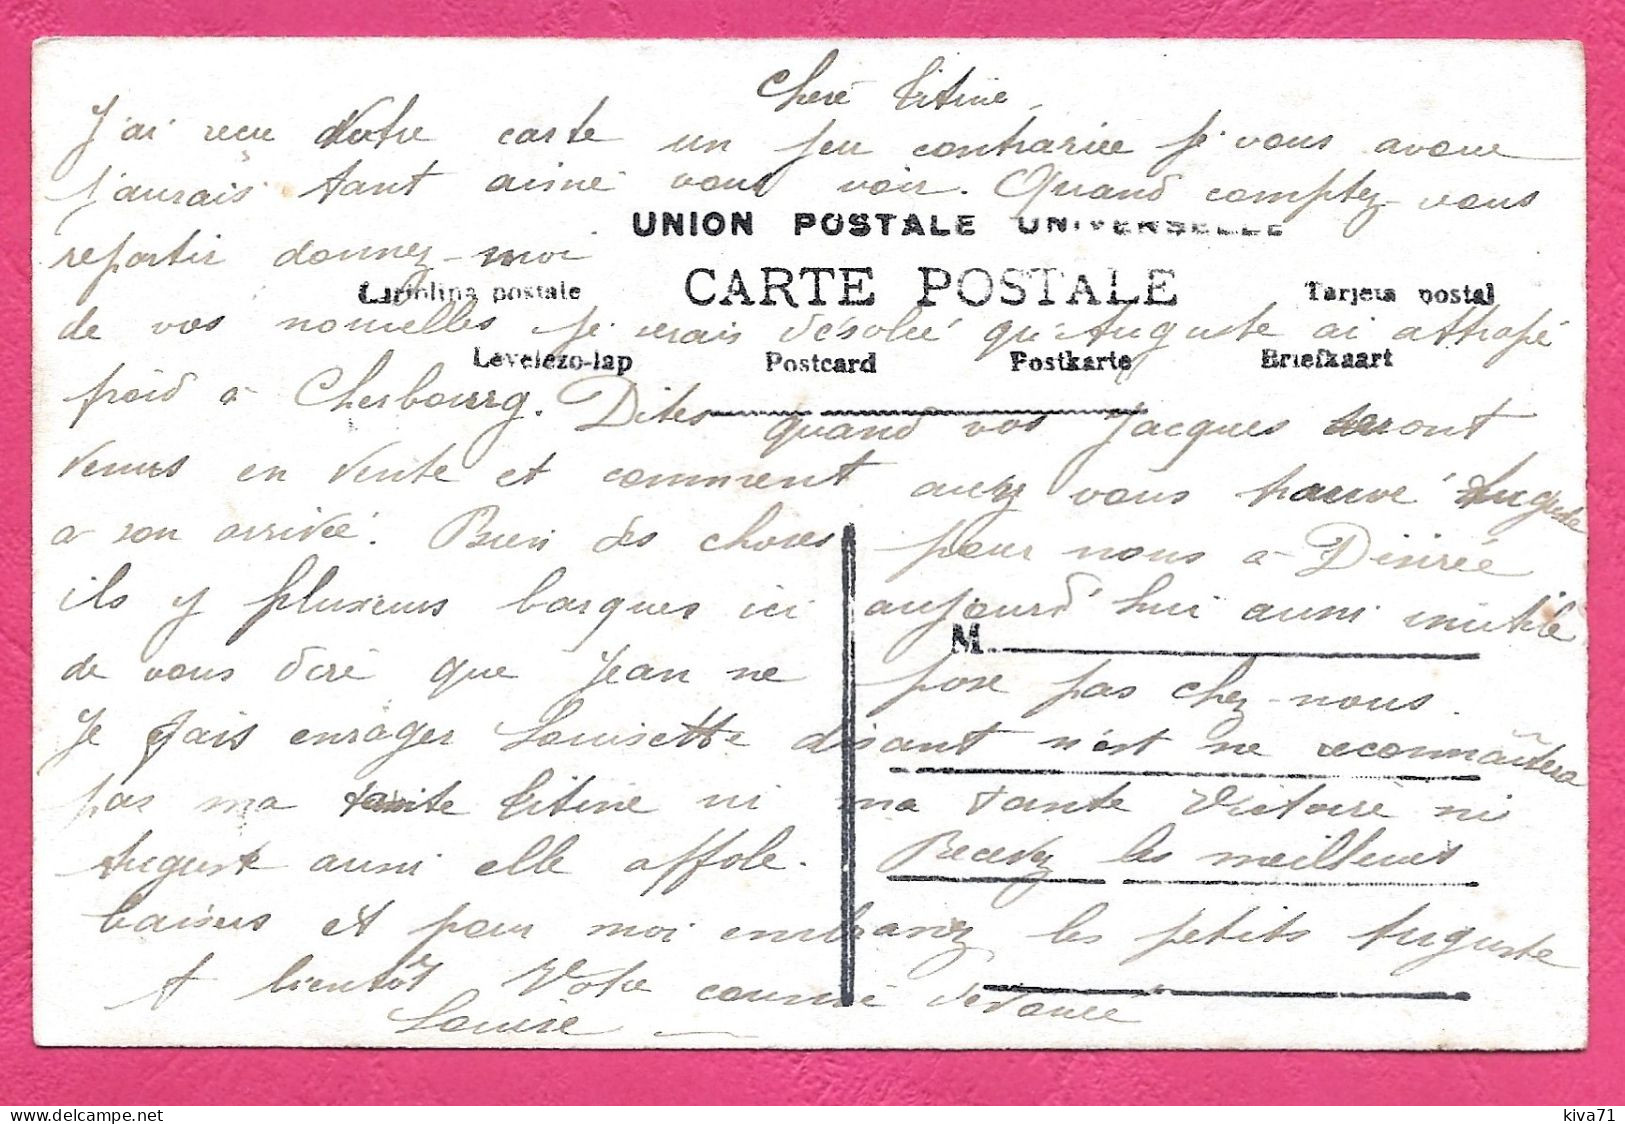 Cheré Titine
J'ai recu Votre carte un peu contrariée je vous avoue
j'aurais tant aimé vous voir. Quand comptez-vous
UNION POSTALE UNIVERSELLE
repartir donnez-moi
CARTE POSTALE
Cartolina postale Tarjeta postal
de vos nouvelles je serais désolée qu'Auguste ai attrapé
Levelezo-lap Postcard Postkarte Briefkaart
froid a Cherbourg. Dites quand vos Jacques seront
venus en vente et comment avez vous trouvé Auguste
a son arrivée. Bien des choses pour nous a Désirée
ils y plusieurs barques ici aujourd'hui aussi inutile
M.
de vous diré que Jean ne pose pas chez-nous.
Je fais enrager Louisette disant n'est ne reconnaîtera
pas ma tante Titine ni ma tante Victoire ni
Auguste aussi elle affole. Recevez les meilleurs
baisers et pour moi embrassez les petits Auguste
A bientôt Votre cousine dévouée
Louise
kiva71